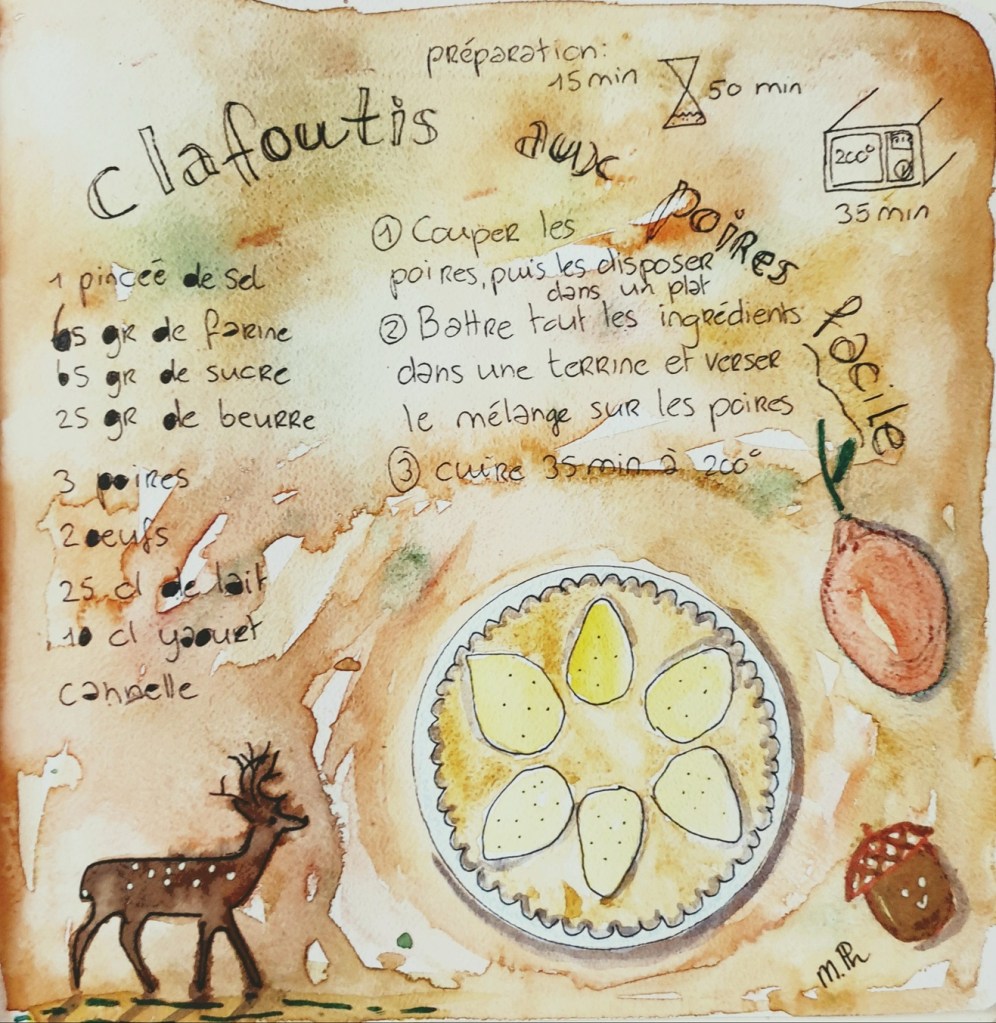 préparation:
15 min
50 min
200°
35 min
clafoutis aux poires facile
1 pinceé de sel
65 gr de farine
65 gr de sucre
25 gr de beurre
3 poires
2 oeufs
25 cl de lait
10 cl yaourt
cannelle
① Couper les
poires, puis les disposer
dans un plat
② Battre tout les ingrédients
dans une terrine et verser
le mélange sur les poires
③ cuire 35 min à 200°
M.Ph